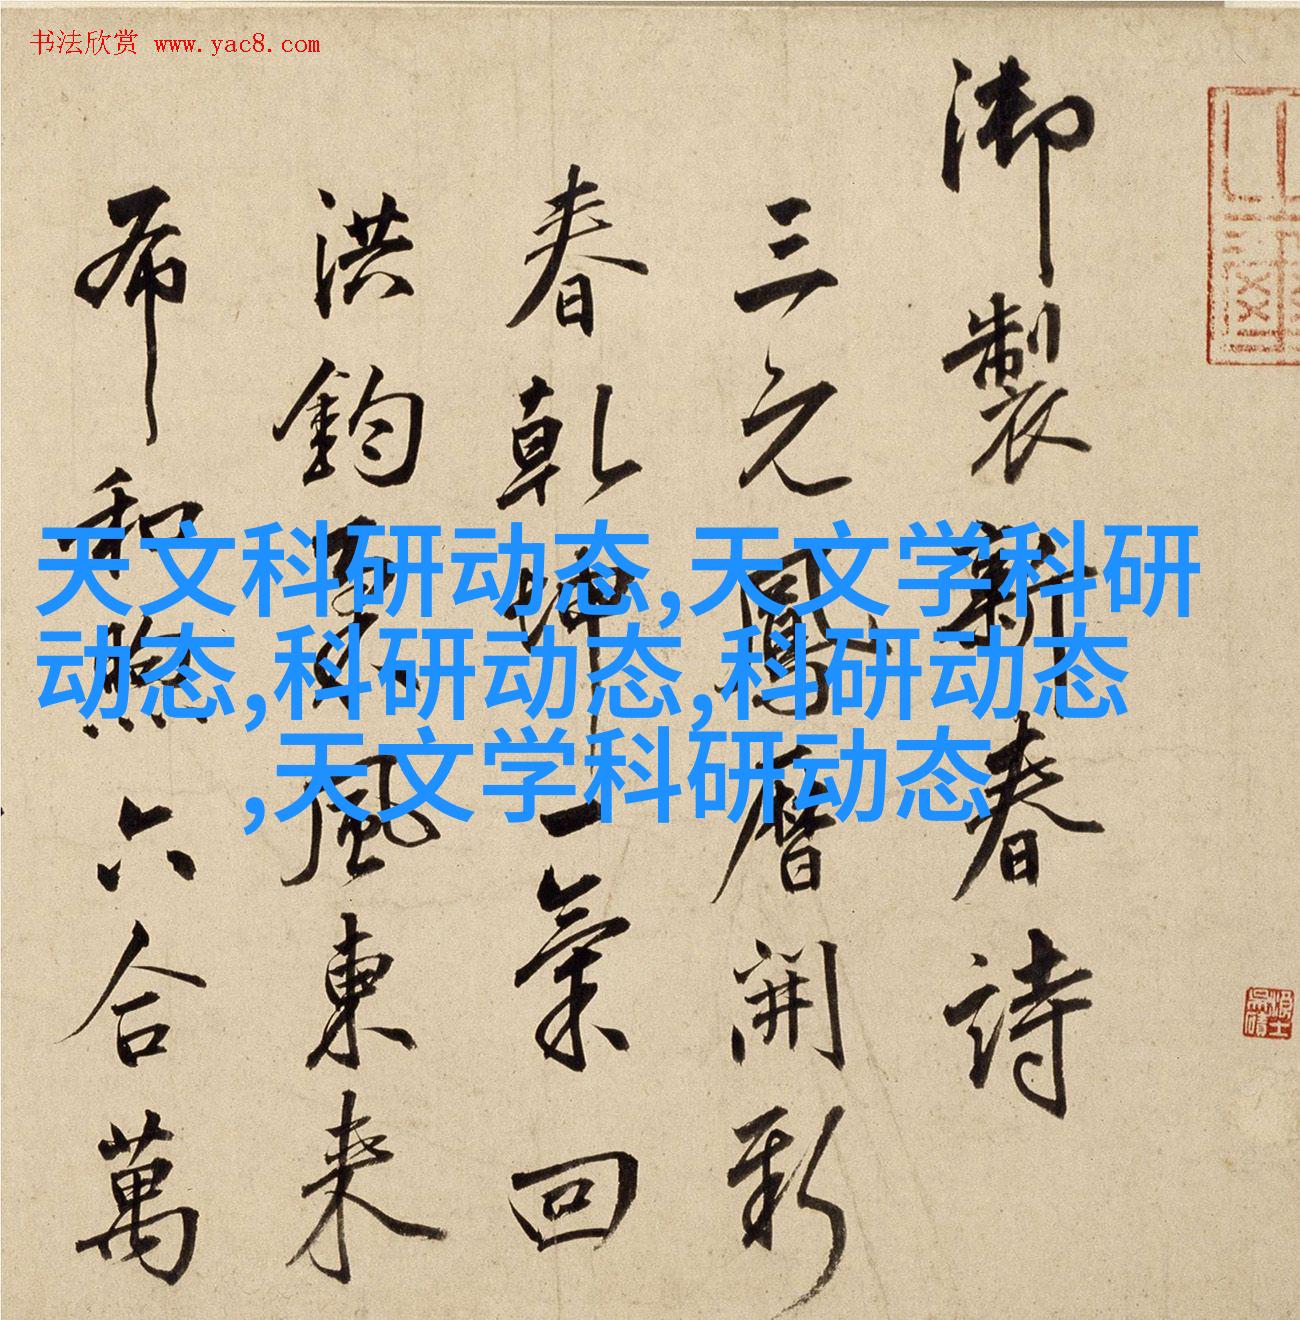 书法欣赏 www.yac8.com
御製新春詩
三元鳳曆開新
春乾坤一氣回
洪鈞 風東来
布和煦六合萬
天文科研动态,天文学科研
动态,科研动态,科研动态
,天文学科研动态